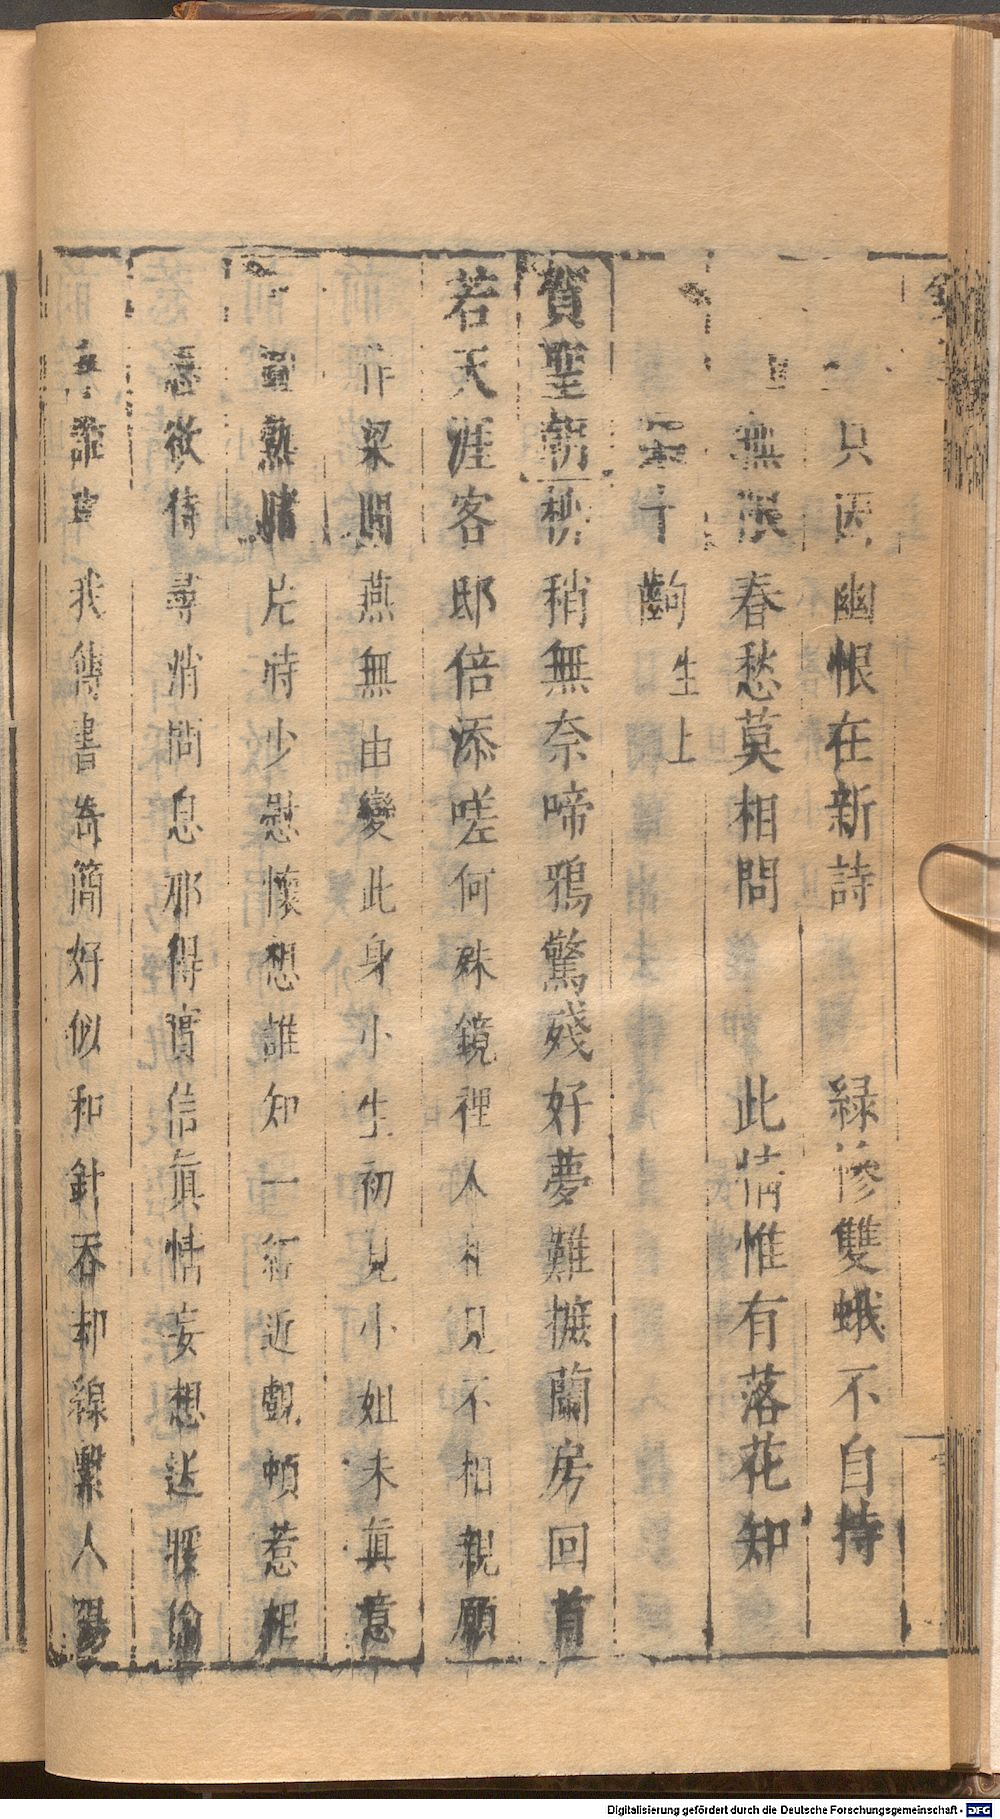 只因幽恨在新詩 緑慘雙蛾不自持
無限春愁莫相問 此情惟有落花知
十齣 生上
賀聖朝 稍無奈啼鴉驚殘好夢難攄蘭房回首
若天涯客邸倍添嗟何殊鏡裡人相見不相親願
作梁間燕無由變此身小生初見小姐未眞意
熟睹片時少慰懷想誰知一行近覷頓惹相
思欲待尋消問息那得實信眞情妄想
誰與我傳書寄簡好似和針吞却線繫人腸
Digitalisierung gefördert durch die Deutsche Forschungsgemeinschaft - DFG